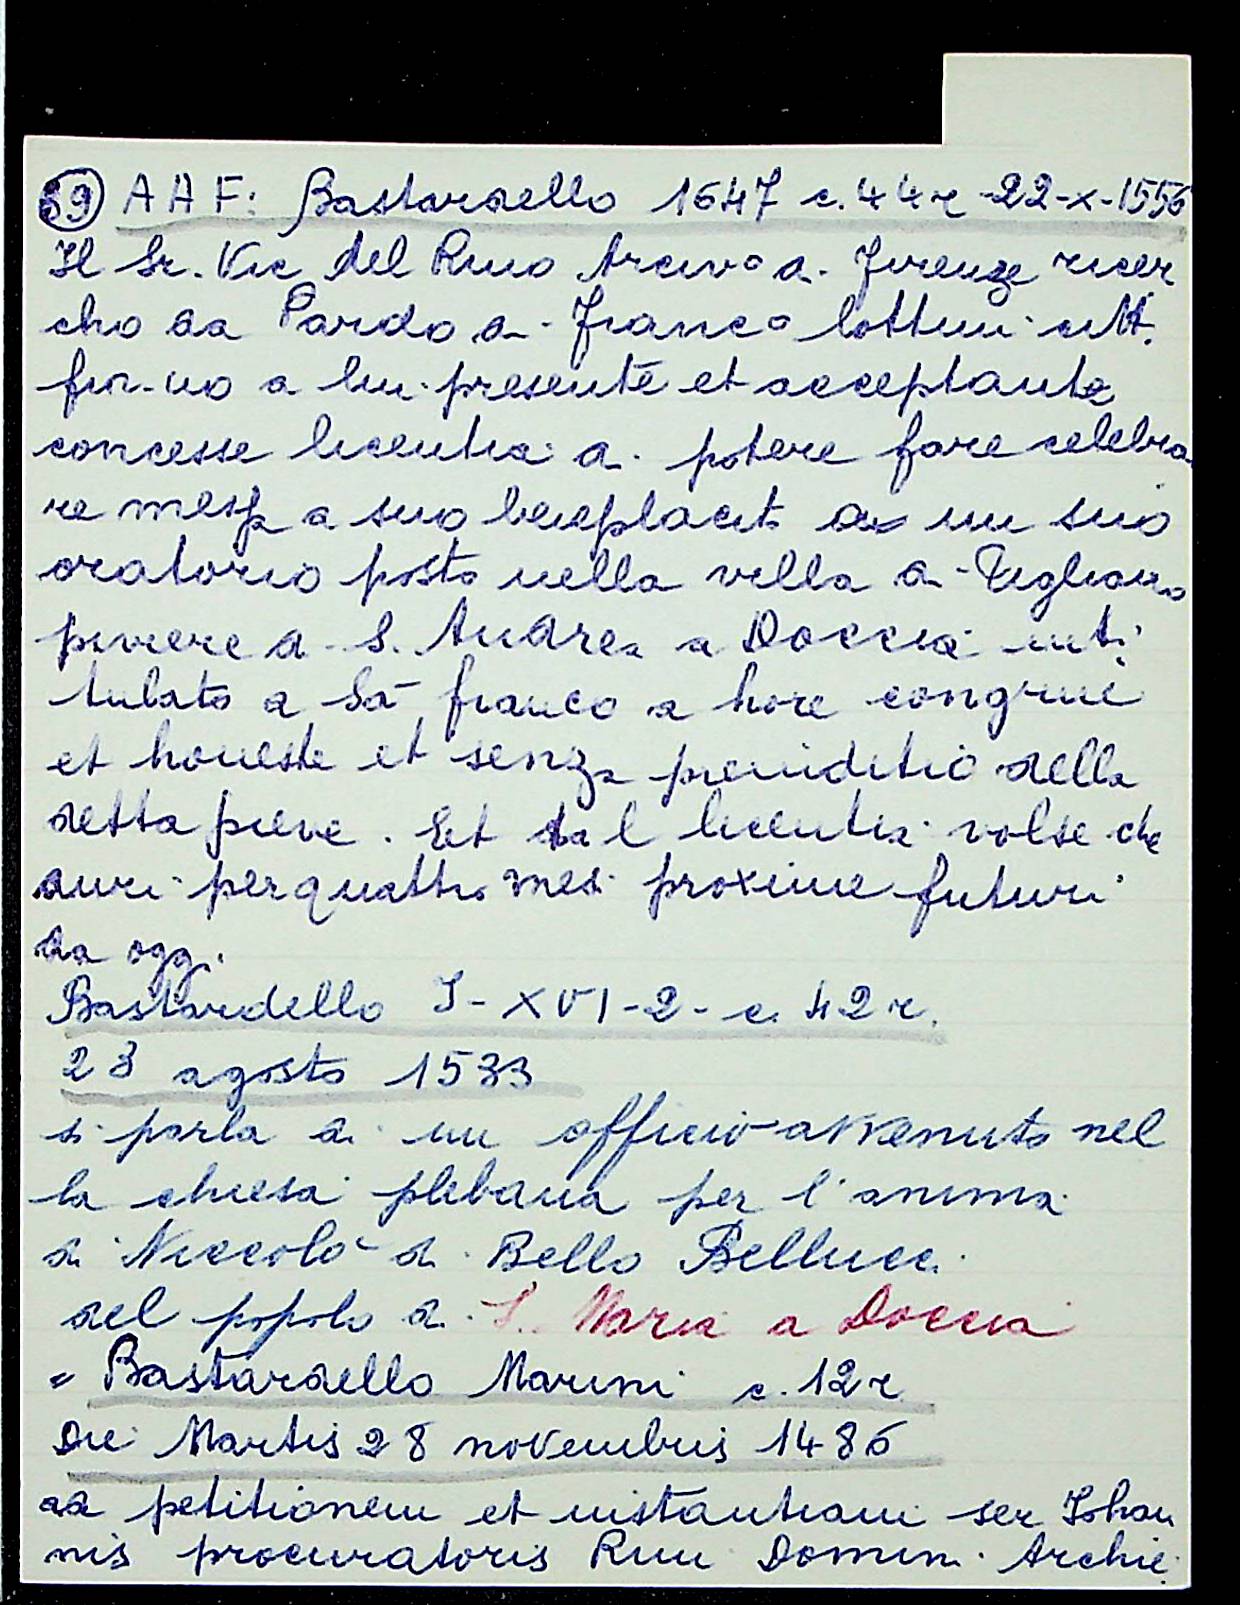 59 AAF: Bastardello 1647 c. 44r 22-X-1556
Il Sr. Vic del Rmo Arcivo di Firenze ricer
cho da Pardo di Franco lottini citt.
fior-no a lui presente et acceptante
concesse licentia di potere fare celebra
re messa a suo beneplacito in un suo
oratorio posto nella villa di Tigliano
piviere di S. Andrea a Doccia inti
tulato a Sā franco a hore congrue
et honeste et senza preiuditio della
detta pieve. Et tal licentia volse che
duri per quattro mesi proxime futuri
da oggi.
Bastardello I-XVI-2- c. 42r.
23 agosto 1533
si parla di un officio avvenuto nel
la chiesa plebana per l'anima
di Niccolò di Bello Bellucci
del popolo di S. Maria a Doccia
= Bastardello Marini c. 12r
Die Martis 28 novembris 1486
ad petitionem et instantiam ser Johan
nis procuratoris Rmi Domini Archie